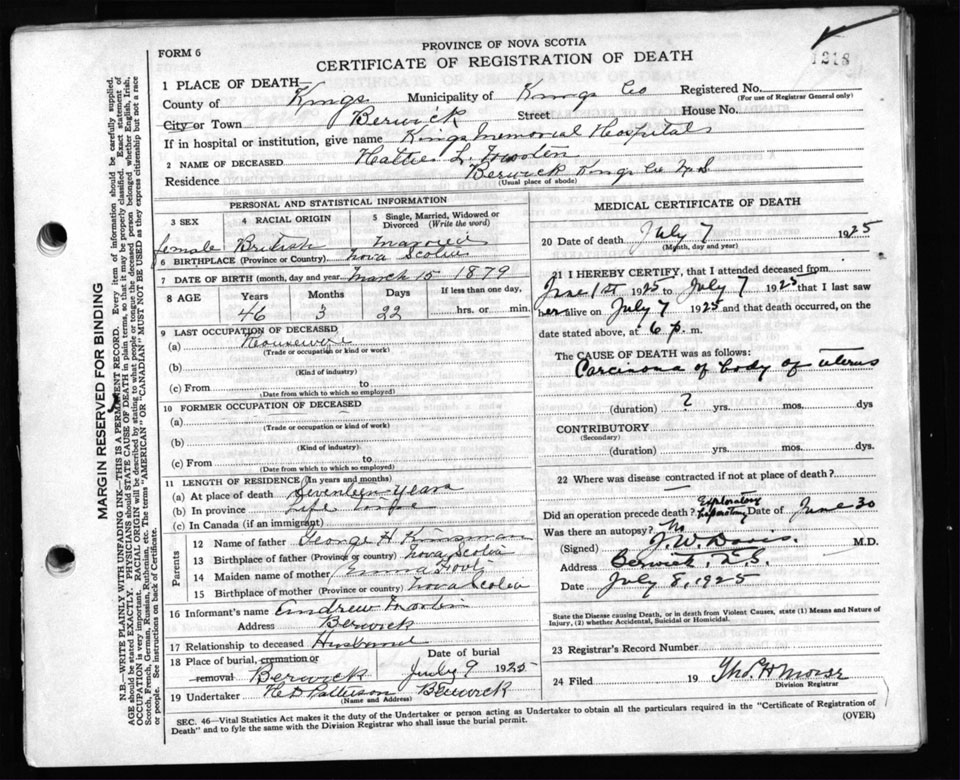 FORM 6
PROVINCE OF NOVA SCOTIA
CERTIFICATE OF REGISTRATION OF DEATH
1 PLACE OF DEATH—
County of Kings Municipality of Kings Co Registered No.
(For use of Registrar General only)
City or Town Berwick Street House No.
If in hospital or institution, give name Kings Memorial Hospital
2 NAME OF DECEASED Hattie L.
Residence Berwick Kings Co N.S
(Usual place of abode)
PERSONAL AND STATISTICAL INFORMATION
3 SEX 4 RACIAL ORIGIN 5 Single, Married, Widowed or Divorced (Write the word)
female British Married
6 BIRTHPLACE (Province or Country) Nova Scotia
7 DATE OF BIRTH (month, day and year) March 15 1879
8 AGE Years Months Days If less than one day,
46 3 22 hrs. or min.
9 LAST OCCUPATION OF DECEASED
(a) Housewife
(Trade or occupation or kind of work)
(b)
(Kind of industry)
(c) From to
(Date from which to which so employed)
10 FORMER OCCUPATION OF DECEASED
(a)
(Trade or occupation or kind of work)
(b)
(Kind of industry)
(c) From to
(Date from which to which so employed)
11 LENGTH OF RESIDENCE (In years and months)
(a) At place of death Seventeen Years
(b) In province Life time
(c) In Canada (if an immigrant)
Parents
12 Name of father George H. Kinsman
13 Birthplace of father (Province or country) Nova Scotia
14 Maiden name of mother Emma
15 Birthplace of mother (Province or country) Nova Scotia
16 Informant's name Andrew
Address Berwick
17 Relationship to deceased Husband
18 Place of burial, cremation or removal Berwick Date of burial July 9 1925
19 Undertaker Patterson Berwick
(Name and Address)
MEDICAL CERTIFICATE OF DEATH
20 Date of death July 7 1925
(Month, day and year)
21 I HEREBY CERTIFY, that I attended deceased from
June 1st 1925 to July 7 1925 that I last saw
her alive on July 7 1925 and that death occurred, on
date stated above, at 6 p. m.
The CAUSE OF DEATH was as follows:
Carcinoma of body of uterus
(duration) ? yrs. mos. dys
CONTRIBUTORY
(Secondary)
(duration) yrs. mos. dys.
22 Where was disease contracted if not at place of death?
Did an operation precede death? Exploratory Laparotomy Date of June 30
Was there an autopsy? No
(Signed) J. W. Davis. M.D.
Address Berwick, N.S.
Date July 8, 1925
State the Disease causing Death, or in death from Violent Causes, state (1) Means and Nature of
Injury, (2) whether Accidental, Suicidal or Homicidal.
23 Registrar's Record Number
24 Filed 19 Thos. H Morse
Division Registrar
SEC. 46—Vital Statistics Act makes it the duty of the Undertaker or person acting as Undertaker to obtain all the particulars required in the "Certificate of Registration of
Death" and to fyle the same with the Division Registrar who shall issue the burial permit. (OVER)
MARGIN RESERVED FOR BINDING
N.B.—WRITE PLAINLY WITH UNFADING INK—THIS IS A PERMANENT RECORD. Every item of information should be carefully supplied.
AGE should be stated EXACTLY. PHYSICIANS should STATE CAUSE OF DEATH in plain terms, so that it may be properly classified. Exact statement of
OCCUPATION is very important. RACIAL ORIGIN will be described by stating to what people or tongue the deceased person belonged whether English, Irish,
Scotch, French, German, Russian, Ruthenian, etc. The terms "AMERICAN" or "CANADIAN" MUST NOT BE USED as they express citizenship but not a race
or people. See instructions on back of Certificate.